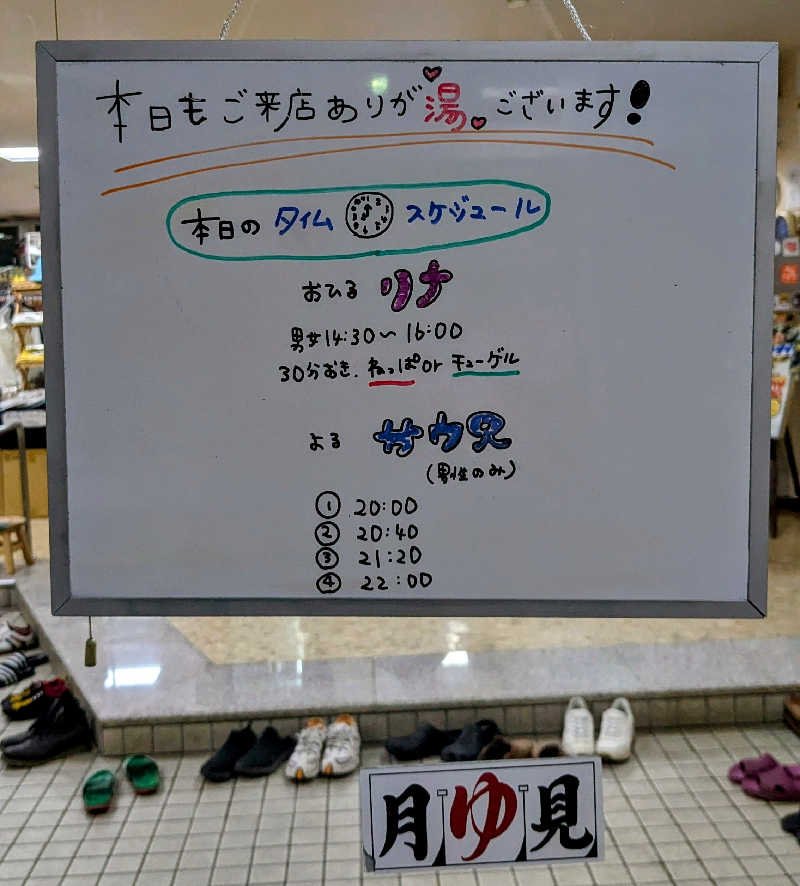 本日もご来店ありが湯ございます!
本日のタイムスケジュール
おひる リナ
男女14:30〜16:00
30分おき.ねっぱorチューゲル
よる サウ兄
(男性のみ)
① 20:00
② 20:40
③ 21:20
④ 22:00
月ゆ見